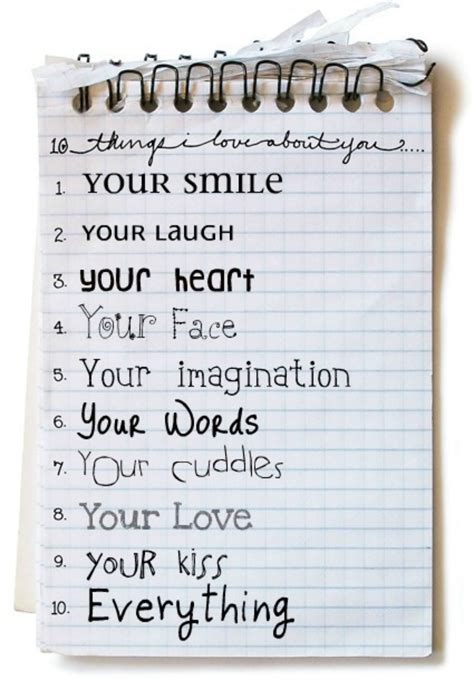 10 things i love about you.....
1. YOUR SMILE
2. YOUR LAUGH
3. your heart
4. Your Face
5. Your imagination
6. Your Words
7. Your cuddles
8. Your Love
9. YOUR KISS
10. Everything